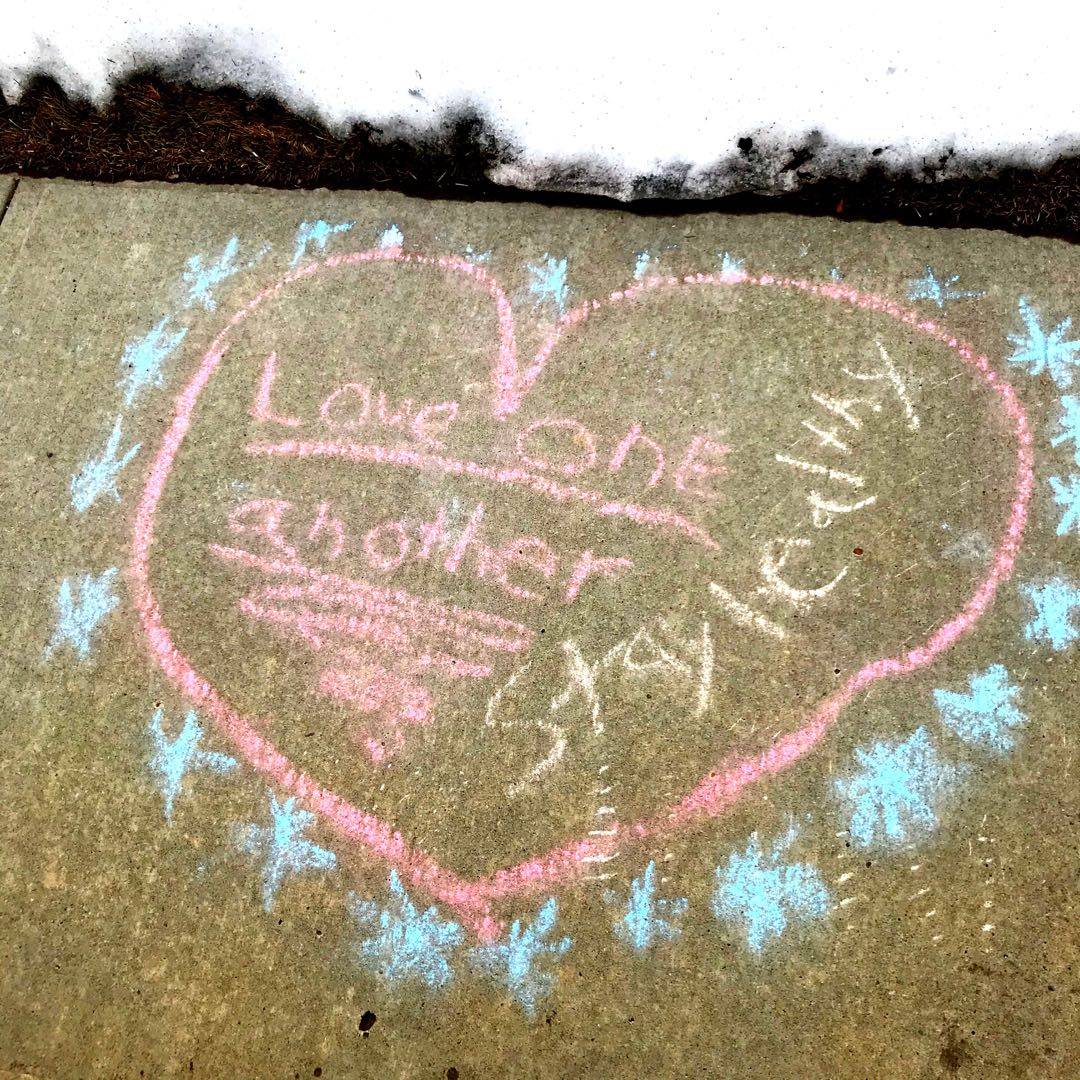 Love One
another
Stay Healthy